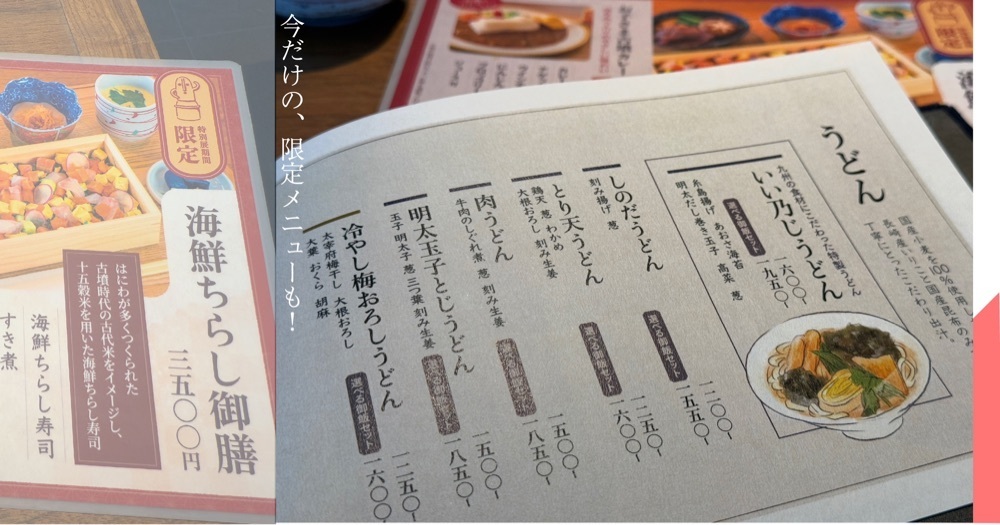 今だけの、限定メニューも!
特別展期間
限定
海鮮ちらし御膳
三五〇〇円
はにわが多くつくられた
古墳時代の古代米をイメージし、
十五穀米を用いた海鮮ちらし寿司
海鮮ちらし寿司
すき煮
限定
うどん
国産小麦を100%使用し
長崎産いりこと国産昆布のみ
丁寧にとったこだわり出汁。
九州の食材にこだわった特製うどん
いい乃じうどん
選べる御飯セット
一六〇〇
一九五〇
糸島揚げ あおさ海苔 葱
明太だし巻き玉子 高菜
しのだうどん
刻み揚げ 葱
選べる御飯セット
一二〇〇
一五五〇
とり天うどん
鶏天 葱 わかめ
大根おろし 刻み生姜
選べる御飯セット
一二五〇
一六〇〇
肉うどん
牛肉のしぐれ煮 葱 刻み生姜
一五〇〇
一八五〇
明太玉子とじうどん
玉子 明太子 葱 三つ葉 刻み生姜
一五〇〇
一八五〇
冷やし梅おろしうどん
太宰府梅干し 大根おろし
大葉 おくら 胡麻
選べる御飯セット
一二五〇
一六〇〇